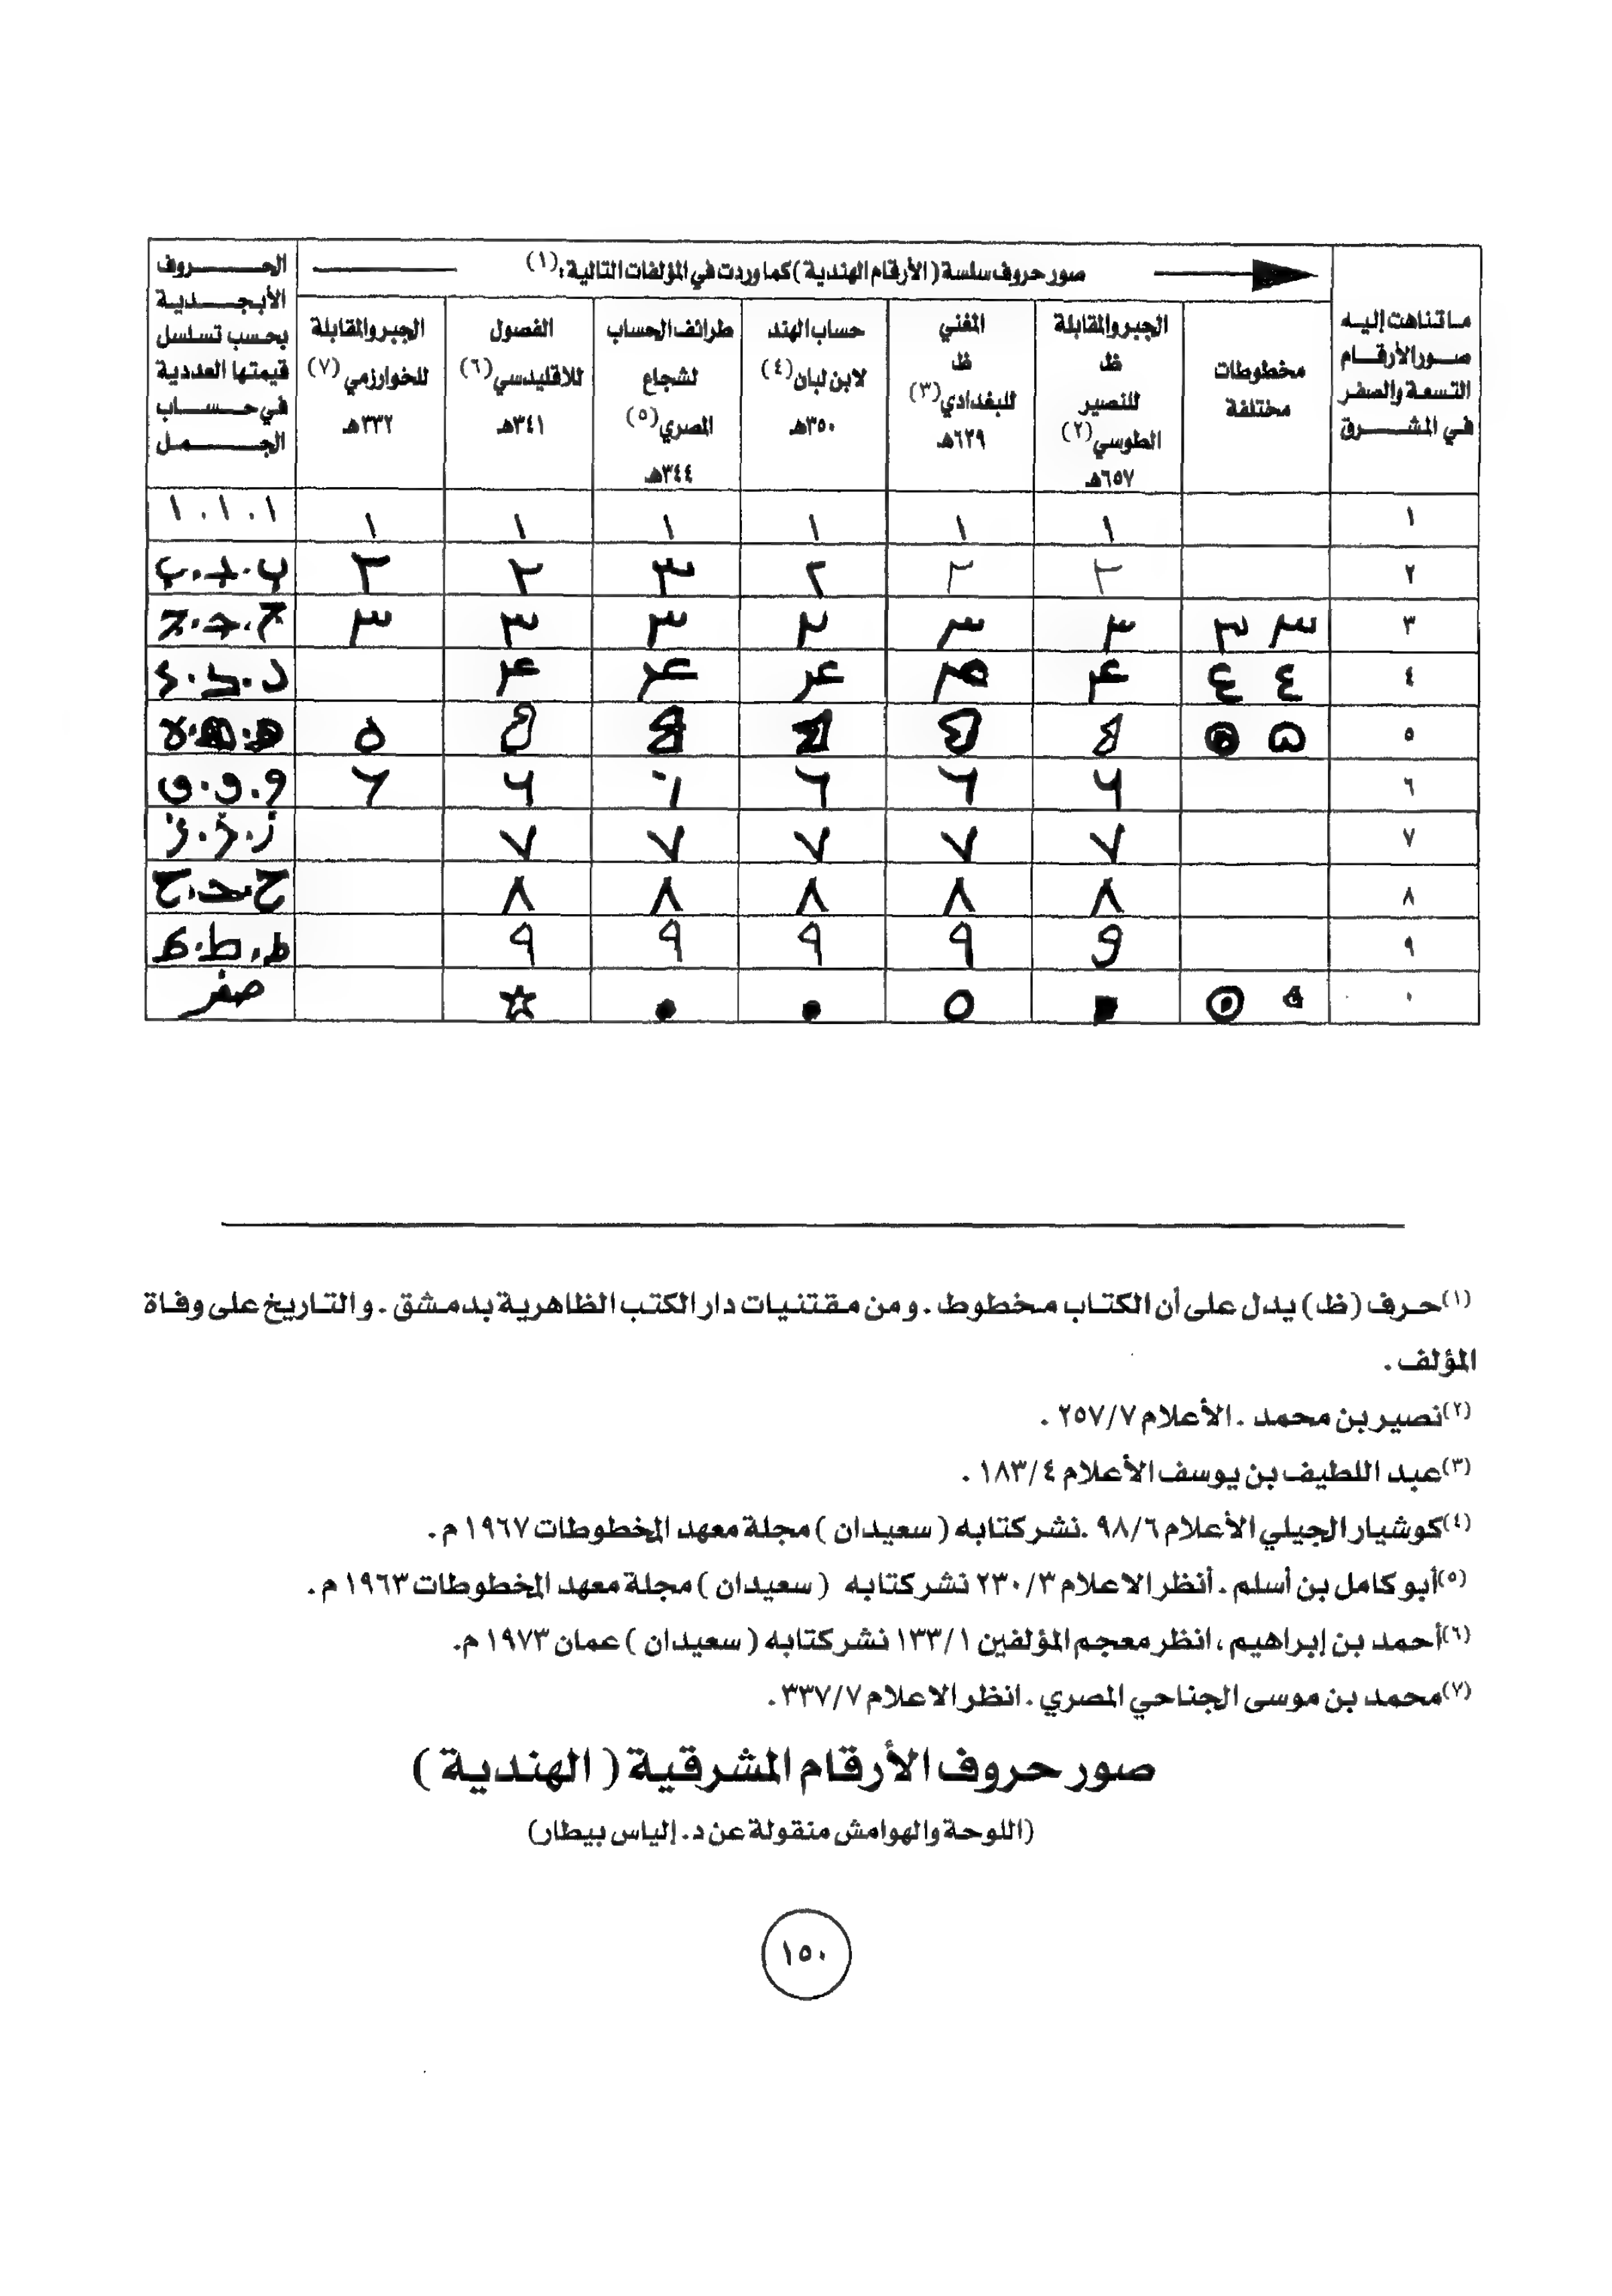 ماتناهت إليه
صور الأرقام
التسعة والصفر
في المشرق
صور حروف سلسة (الأرقام الهندية) كما وردت في المؤلفات التالية: (١)
مخطوطات
مختلفة
الجبر والمقابلة
ظ
للنصير
الطوسي (٢)
٦٥٧هـ
المغني
ظ
للبغدادي (٣)
٦٢٩هـ
حساب الهند
لابن لبان (٤)
٣٥٠هـ
طرائف الحساب
لشجاع
المصري (٥)
٣٤٤هـ
الفصول
للاقليدسي (٦)
٣٤١هـ
الجبر والمقابلة
للخوارزمي (٧)
٢٣٢هـ
الحروف
الأبجدية
بحسب تسلسل
قيمتها العددية
في حساب
الجمل
١ ١ ١ ١ ١ ١ ١ ا . ا . ا
٢ ٢ ٢ ٢ ٣ ٢ ٢ ب . ب . ب
٣ ٣ ٣ ٣ ٣ ٣ ٣ ٣ ٣ ج . ج . ج
٤ ٤ ٤ د . د . د
٥ ٥
٦ ٦ ٦ ٦ ٦ و . و . و
٧ ٧ ٧ ٧ ٧ ٧ ز . ز . ز
٨ ٨ ٨ ٨ ٨ ٨ ح . ح . ح
٩ 9 ٩ ٩ ٩ ٩ ط . ط . ط
٠ صفر
(١) حرف (ظ) يدل على أن الكتاب مخطوط . ومن مقتنيات دار الكتب الظاهرية بدمشق . والتاريخ على وفاة
المؤلف .
(٢) نصير بن محمد . الأعلام ٢٥٧/٧ .
(٣) عبد اللطيف بن يوسف الأعلام ١٨٣/٤ .
(٤) كوشيار الجيلي الأعلام ٩٨/٦ .نشر كتابه ( سعيدان ) مجلة معهد المخطوطات ١٩٦٧ م .
(٥) أبو كامل بن أسلم . أنظر الاعلام ٢٣٠/٣ نشر كتابه ( سعيدان ) مجلة معهد المخطوطات ١٩٦٣ م .
(٦) أحمد بن إبراهيم ، انظر معجم المؤلفين ١٣٣/١ نشر كتابه ( سعيدان ) عمان ١٩٧٣ م.
(٧) محمد بن موسى الجناحي المصري . انظر الاعلام ٣٣٧/٧ .
صور حروف الأرقام المشرقية ( الهندية )
(اللوحة والهوامش منقولة عن د. إلياس بيطار)
١٥٠